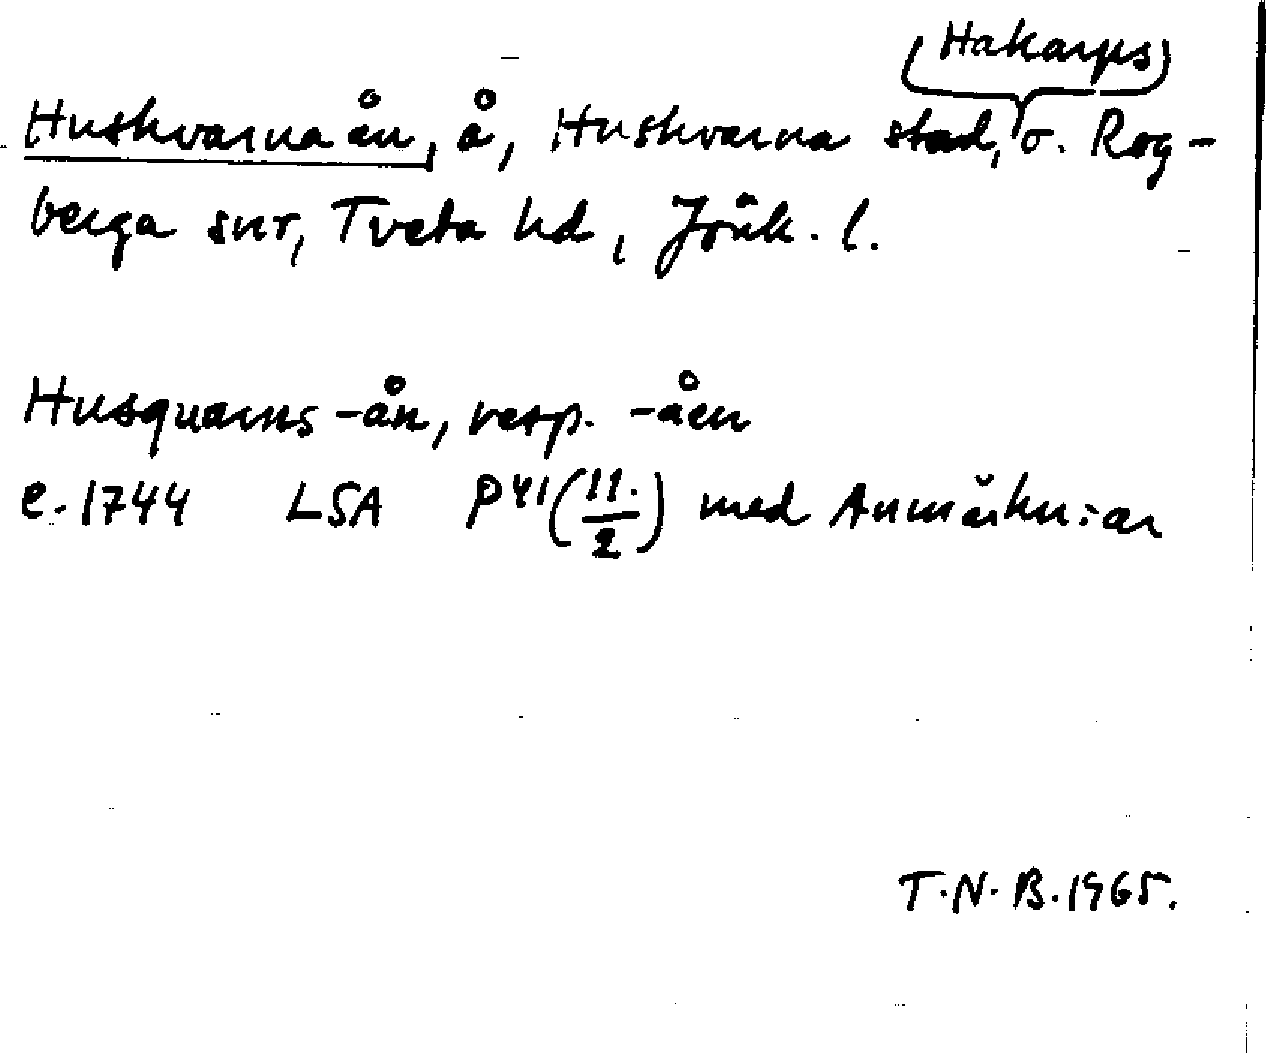 Hakarps
Huskvarnaån, å, Huskvarna stad, o. Rog-
berga snr, Tveta hd, Jönk. l.
Husquarns-ån, resp. -åen
e. 1744 LSA P41 (11./2) med Anmärkn:ar
T.N.B. 1965.